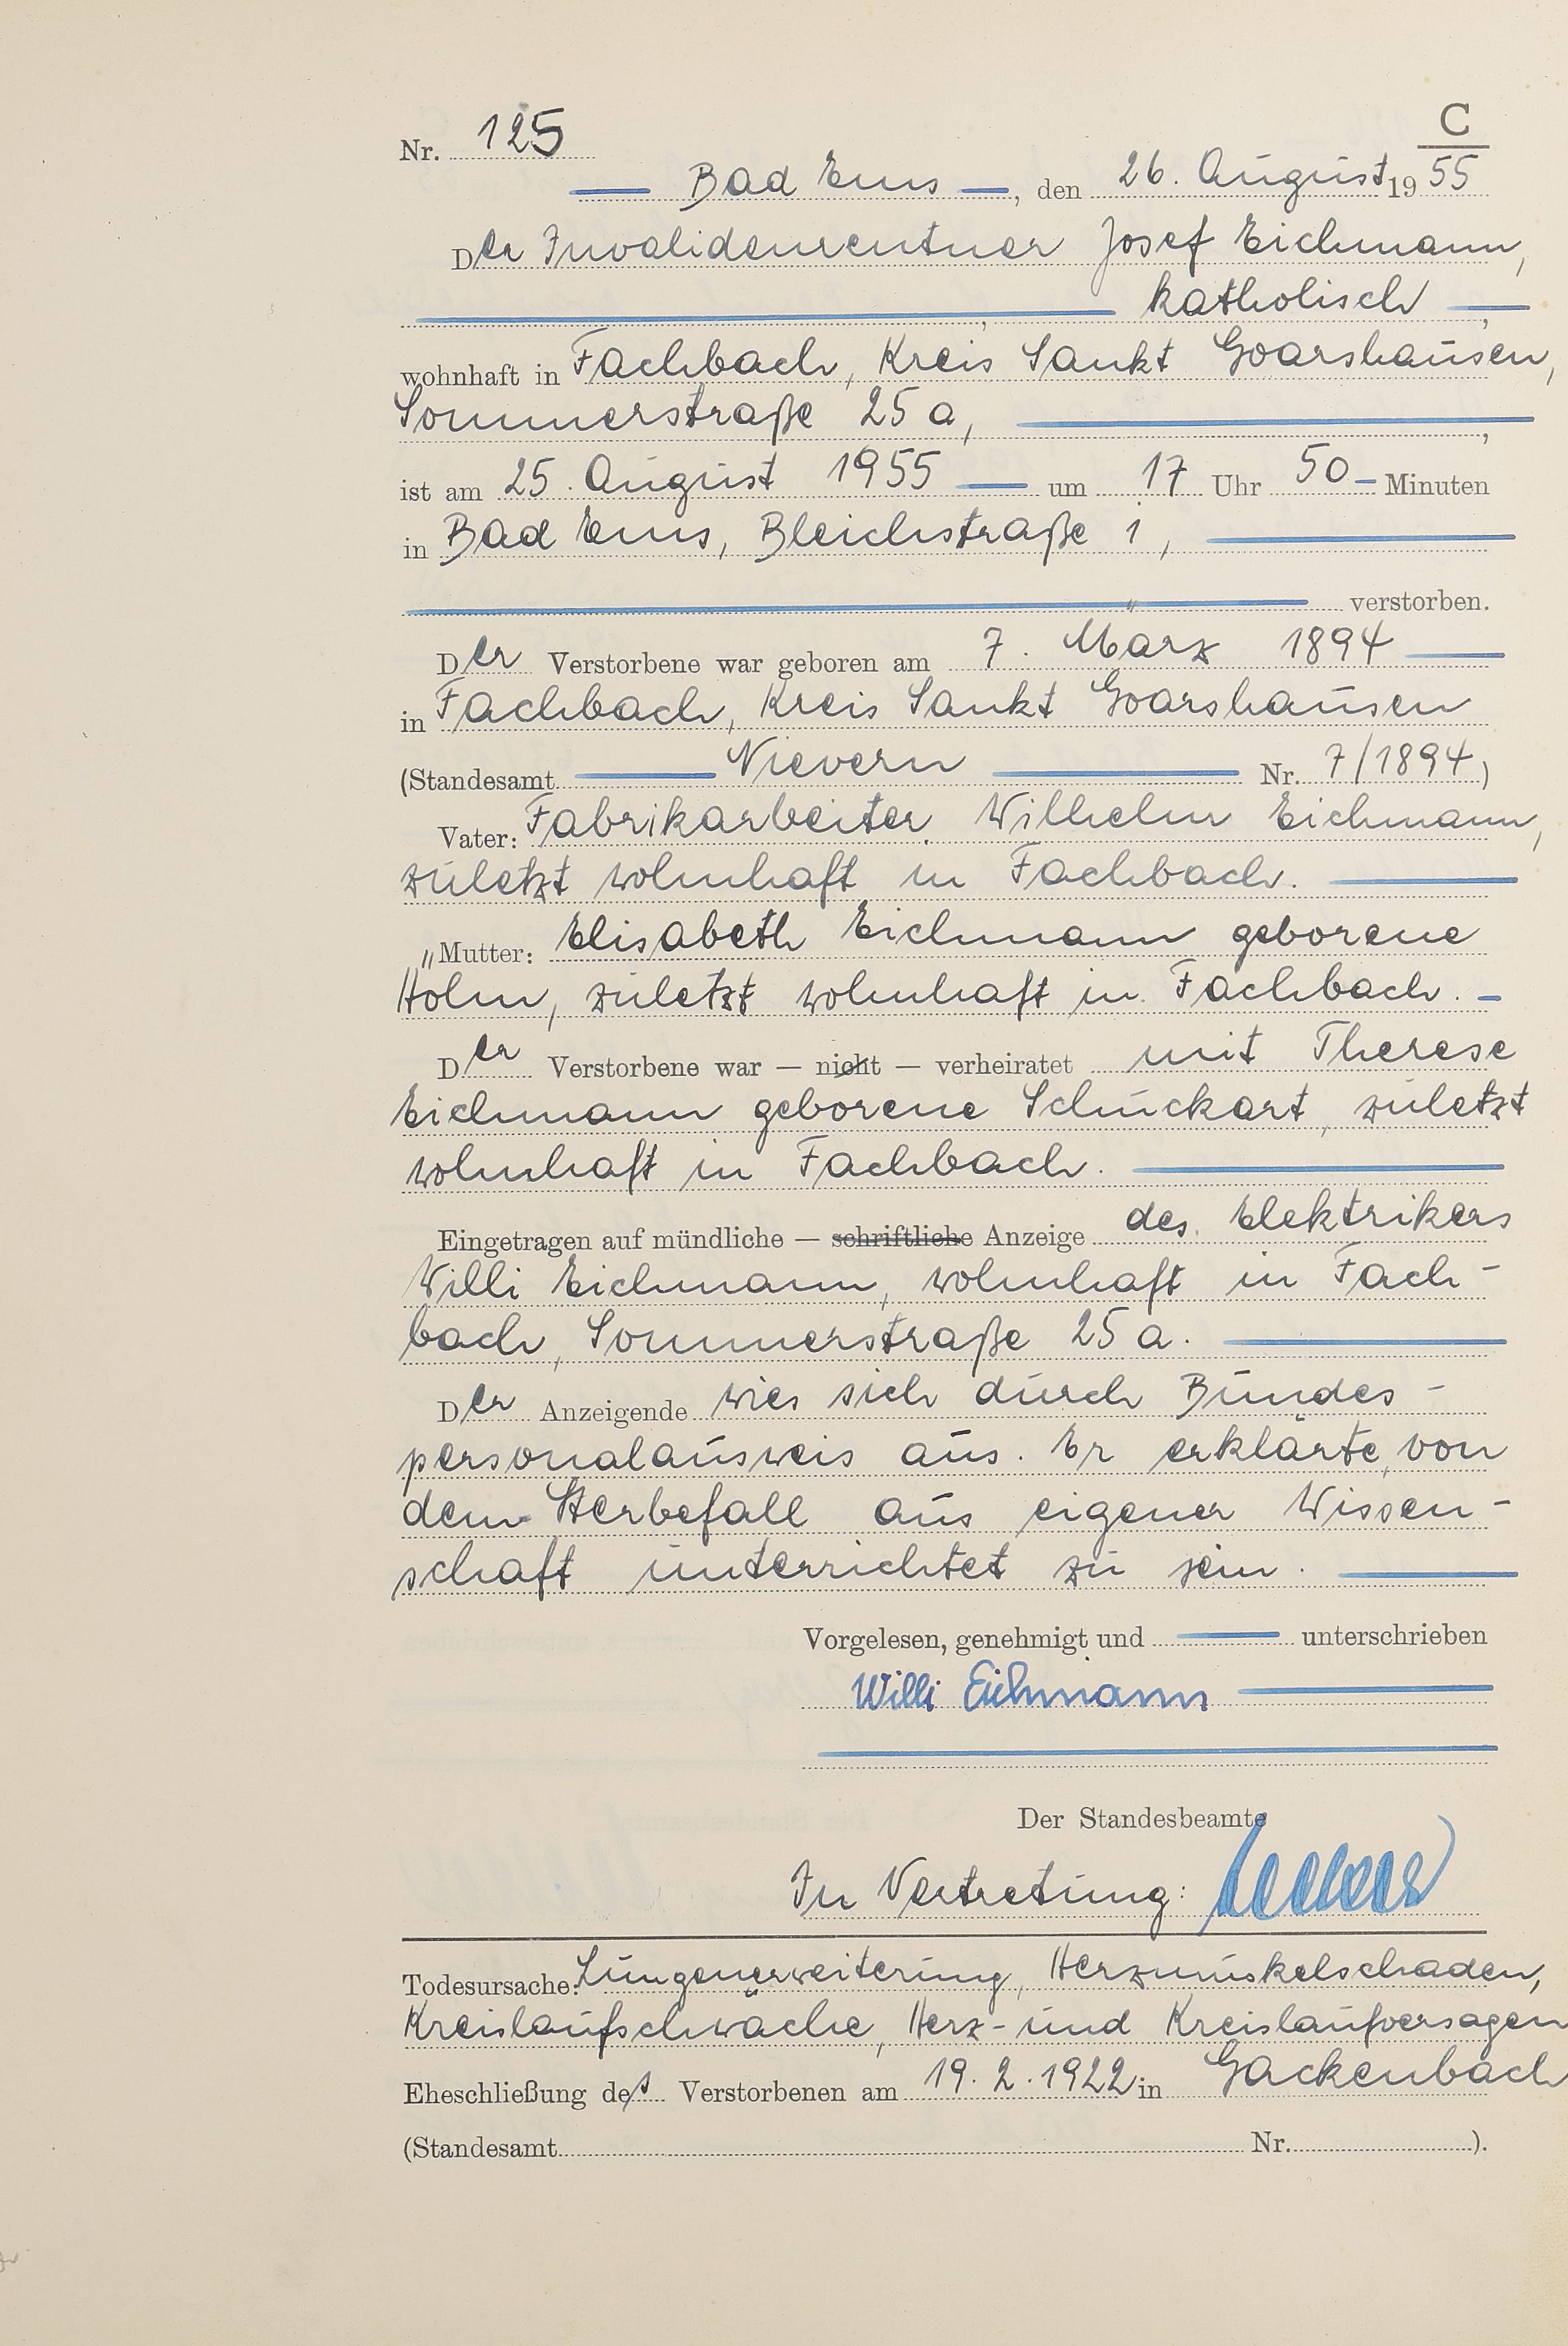 C
Nr. 125
Bad Ems, den 26. August 1955
Der Invalidenrentner Josef Eichmann,
katholisch,
wohnhaft in Fachbach, Kreis Sankt Goarshausen,
Sommerstraße 25 a,
ist am 25. August 1955 um 17 Uhr 50 Minuten
in Bad Ems, Bleichstraße 1,
verstorben.
Der Verstorbene war geboren am 7. März 1894
in Fachbach, Kreis Sankt Goarshausen
(Standesamt Nievern Nr. 7/1894)
Vater: Fabrikarbeiter Wilhelm Eichmann,
zuletzt wohnhaft in Fachbach.
Mutter: Elisabeth Eichmann geborene
Holm, zuletzt wohnhaft in Fachbach.
Der Verstorbene war — nicht — verheiratet mit Therese
Eichmann geborene Schuckart, zuletzt
wohnhaft in Fachbach.
Eingetragen auf mündliche — schriftliche Anzeige des Elektrikers
Willi Eichmann, wohnhaft in Fach-
bach, Sommerstraße 25 a.
Der Anzeigende wies sich durch Bundes-
personalausweis aus. Er erklärte, von
dem Sterbefall aus eigener Wissen-
schaft unterrichtet zu sein.
Vorgelesen, genehmigt und unterschrieben
Willi Eichmann
Der Standesbeamte
In Vertretung:
Todesursache: Lungenerweiterung, Herzmuskelschaden,
Kreislaufschwäche, Herz- und Kreislaufversagen
Eheschließung des Verstorbenen am 19. 2. 1922 in Gackenbach
(Standesamt Nr. ).